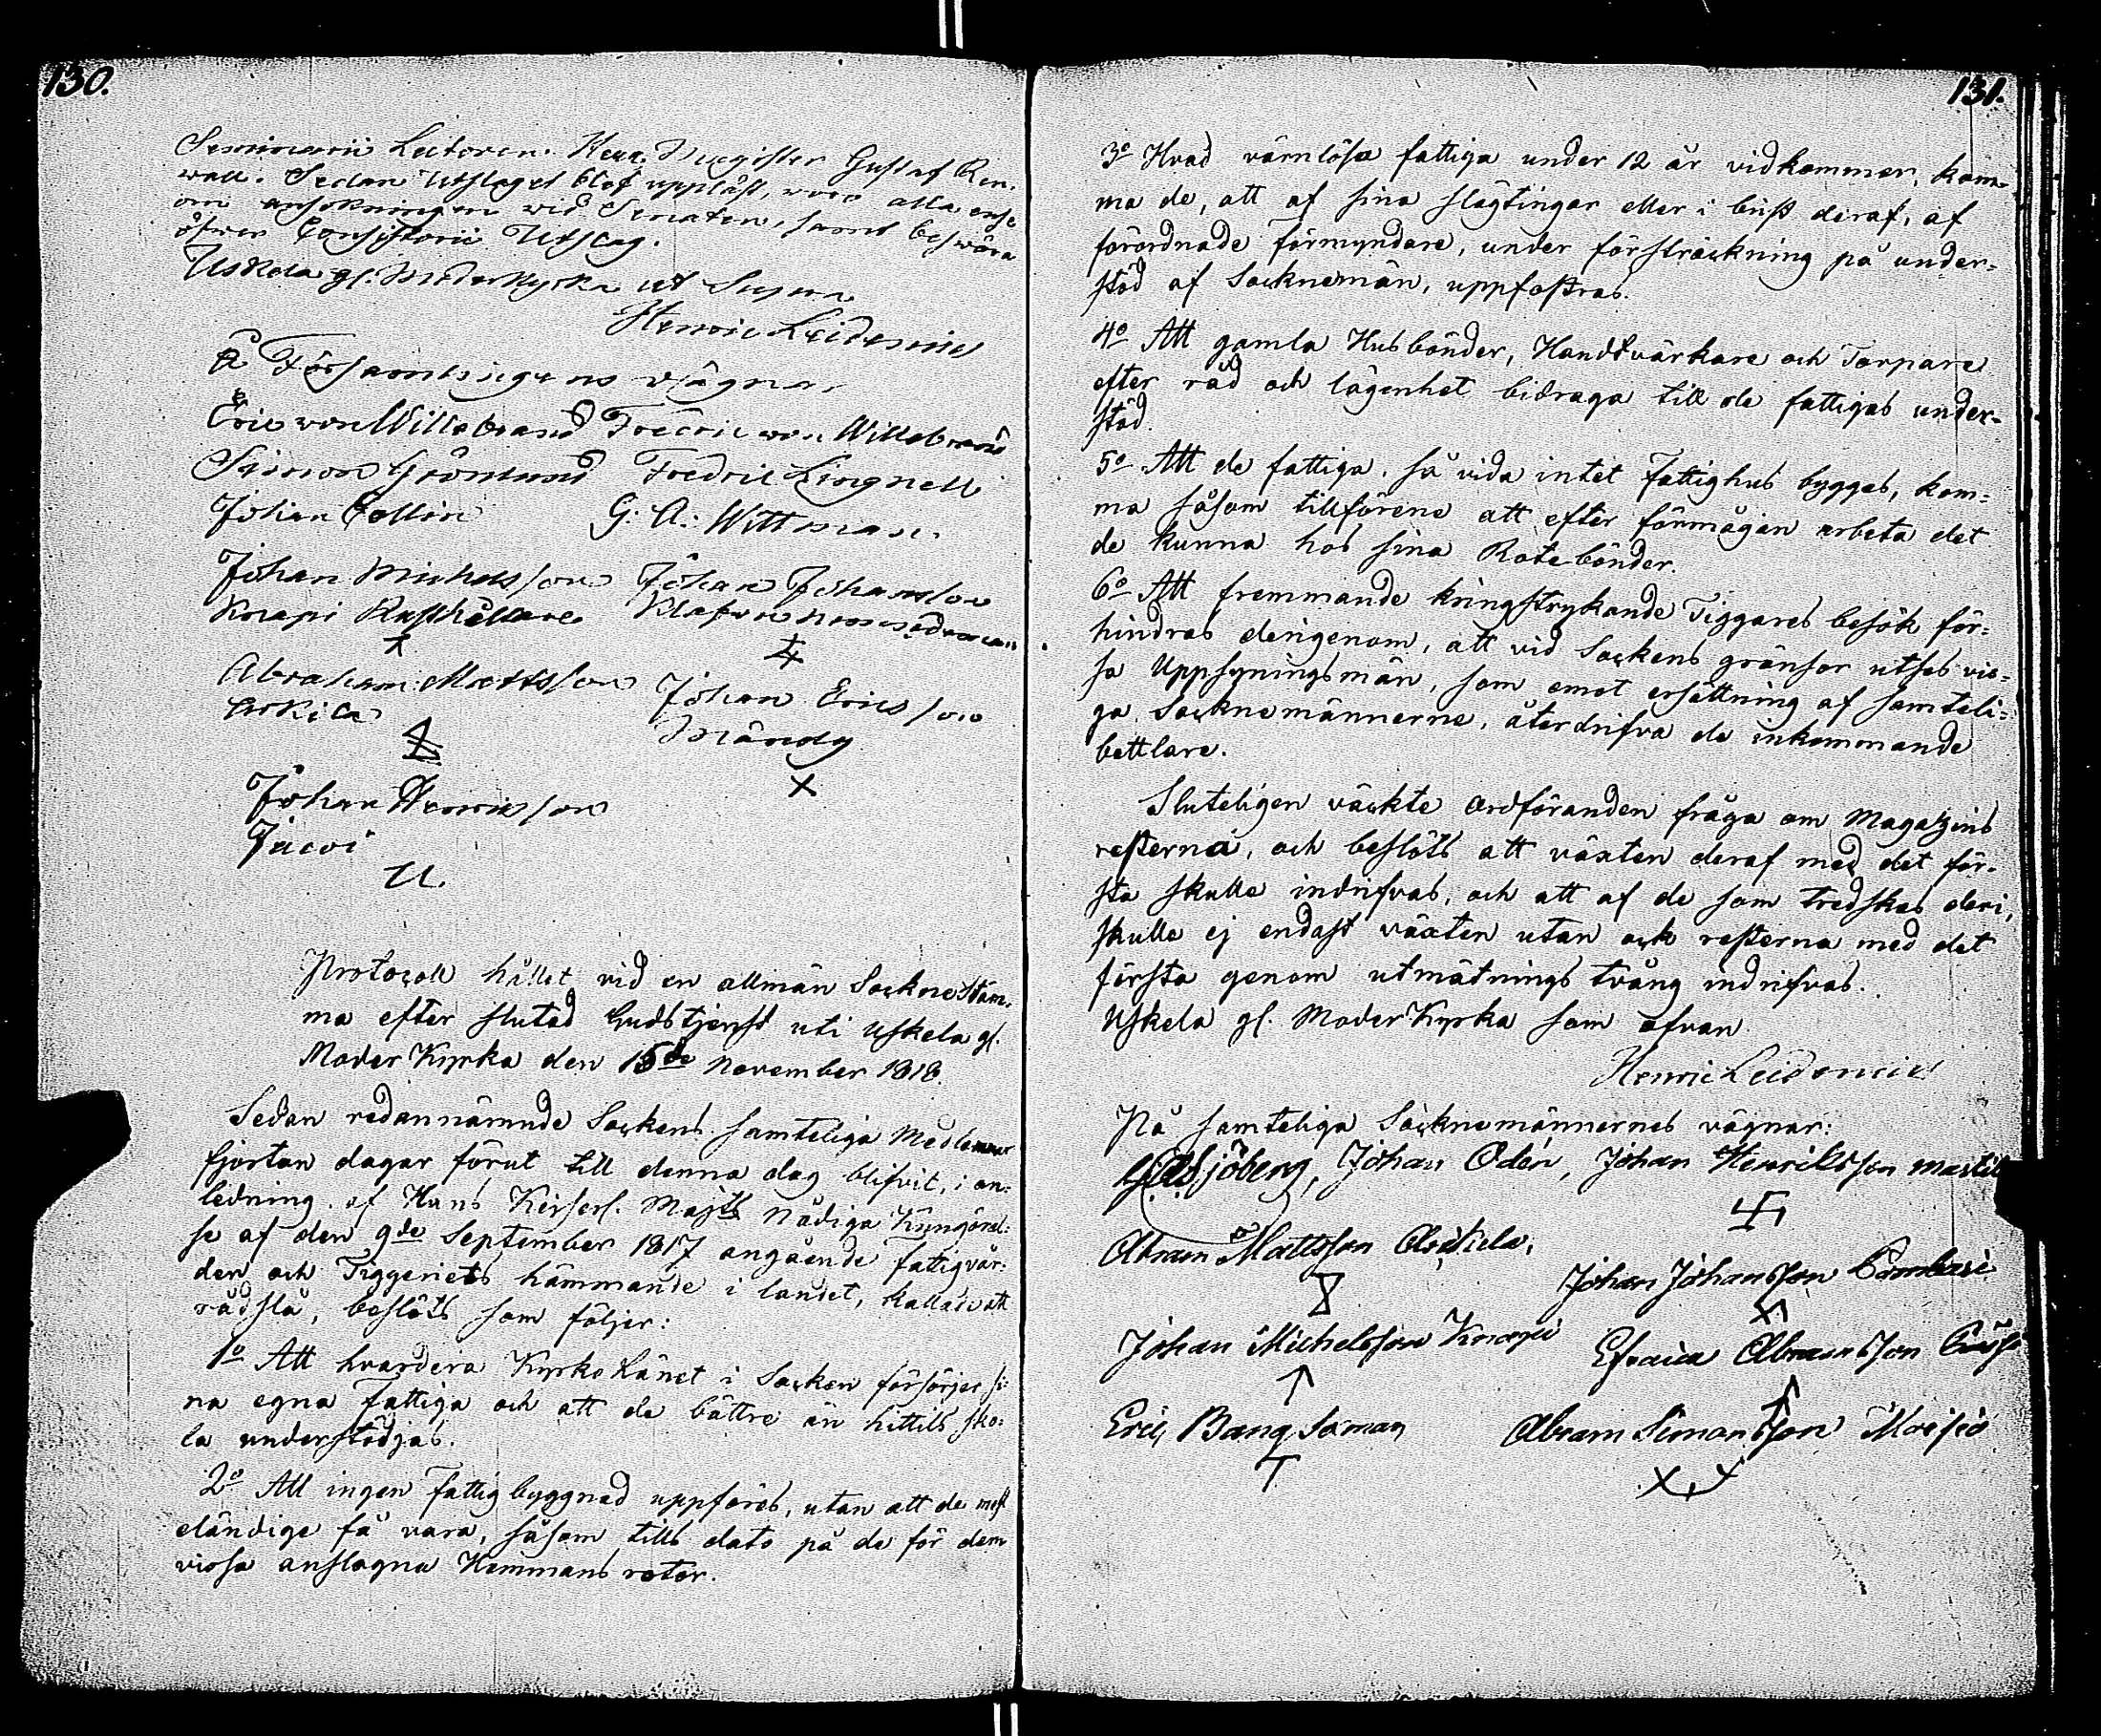 130.
Seminarii Lectoren Herr Magister Gustaf Ren-
wall. Sedan Utslaget blef uppläst, woro alla ense
om ansökningen wid Senaten, samt beswära
öfwer Consistorii Utslag.
Uskela gl. Moderkyrka ut Supra
Henric Leidenius
Å Församlingens wägnar
Eric von Willebrand Fredric von Willebrand
Simon Grönlund Fredric Lingnell
Johan Collin G. A. Wittman.
Johan Michelsson Johan Johansson
Knapi Rusthållare
Abraham Mattsson Johan Ericsson
Erkilä Mändy
Johan Henricsson X
U.
Protocoll hållet vid en allmän Sockne Stäm-
ma efter slutad Gudstjenst uti Uskela gl.
Moder Kyrka den 15de November 1818.
Sedan redannämnde Sockens samteliga Medlemmar
fjorton dagar förut till denna dag blifvit, i an-
ledning af Hans Keiserl. Majts Nådiga Kungörel-
se af den 9de September 1817 angående Fattigvår-
den och Tiggeriets hämmande i landet, kallade att
rådslå, beslöts som följer:
1o Att hvardera Kyrko Länet i Socken försörjer si-
na egna Fattiga och att de bättre än hittils sko-
la understödjas.
2o Att ingen Fattigbyggnad uppföres, utan att de mest
eländige få vara, såsom tills dato på de för dem
vissa anslagna Hemmans rotar.
131.
3o Hvad värnlösa fattiga under 12 år vidkommer, kom-
ma de, att af sina slägtingar eller i brist deraf, af
förordnade förmyndare, under försträckning på under-
stöd af Socknemän, uppfostras.
4o Att gamla Husbönder, Handtvärkare och Torpare
efter råd och lägenhet bidraga till de fattigas under-
stöd.
5o Att de fattiga, så vida intet Fattighus bygges, kom-
ma såsom tillförene att efter förmågan arbeta det
de kunna hos sina Rotebönder.
6o Att fremmande kringstrykande Tiggares besök för-
hindras derigenom, att vid Sockens gränsor utses vis-
sa Uppsyningsmän, som emot ersättning af samteli-
ga Socknemännerne, återdrifva de inkommande
bettlare.
Sluteligen väckte ordföranden fråga om Magazins
resterna, och beslöts att växten deraf med det för-
sta skulle indrifvas, och att af de som tredskas deri,
skulle ej endast växten utan ock resterna med det
första genom utmätnings tvång indrifvas.
Uskela gl. Moder Kyrka som ofvan
Henric Leidenius
På samteliga Socknemännernes vägnar:
Sjöberg, Johan Odén, Johan Henriksson
Abram Mattsson
Johan Johansson
Johan Michelsson Knapi Abramsson
Eric Bang Abram Simonsson Moisio